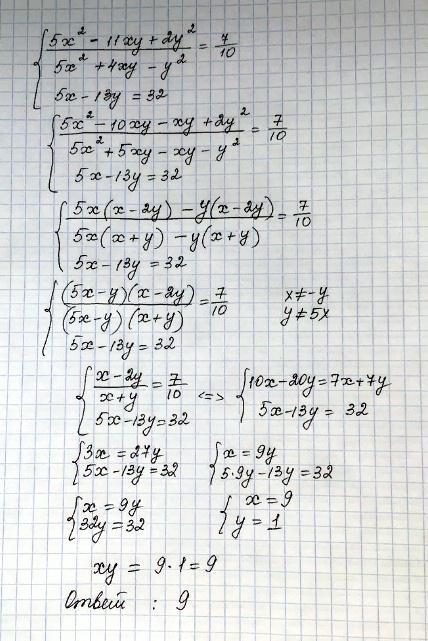 { (5x² - 11xy + 2y²)/(5x² + 4xy - y²) = 7/10
5x - 13y = 32
{ (5x² - 10xy - xy + 2y²)/(5x² + 5xy - xy - y²) = 7/10
5x - 13y = 32
{ (5x(x - 2y) - y(x - 2y))/(5x(x + y) - y(x + y)) = 7/10
5x - 13y = 32
{ ((5x - y)(x - 2y))/((5x - y)(x + y)) = 7/10 x ≠ -y
y ≠ 5x
5x - 13y = 32
{ (x - 2y)/(x + y) = 7/10 <=> { 10x - 20y = 7x + 7y
5x - 13y = 32 5x - 13y = 32
{ 3x = 27y { x = 9y
5x - 13y = 32 5·9y - 13y = 32
{ x = 9y { x = 9
32y = 32 y = 1
xy = 9·1 = 9
Ответ : 9